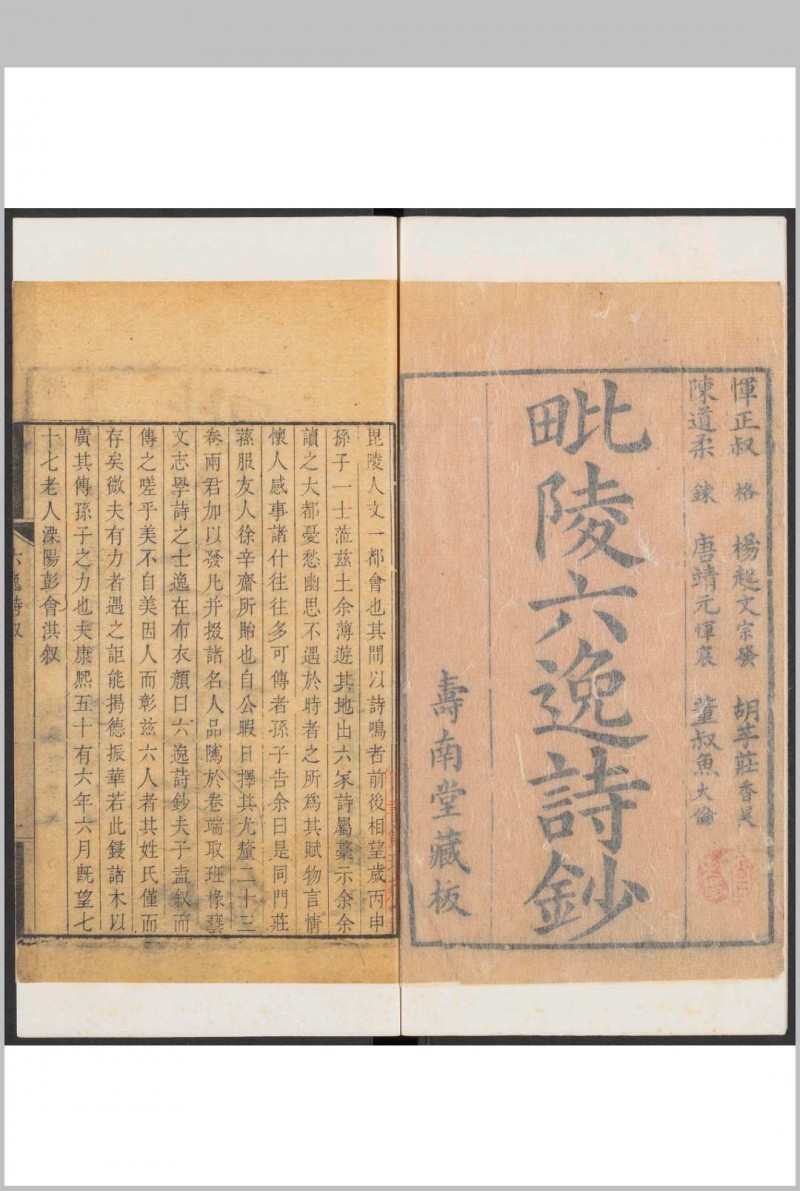 惲正叔 格 楊起文 宗發 胡芋莊 香昊
陳道柔 鍊 唐靖元 惲宸 董叔魚 大倫
毗陵六逸詩鈔
壽南堂藏板
毘陵人文一都會也其間以詩鳴者前後相望歲丙申
孫子一士蒞茲土余薄遊其地出六家詩屬藁示余余
讀之大都憂愁幽思不遇於時者之所為其賦物言情
懷人感事諸什往往多可傳者孫子告余曰是同門莊
蓀服友人徐辛齋所貽也自公暇日擇其尤釐二十三
卷兩君加以發凡并掇諸名人品隲於卷端取班椽藝
文志學詩之士逸在布衣顏曰六逸詩鈔夫子盍叙而
傳之嗟乎美不自美因人而彰茲六人者其姓氏僅而
存矣微夫有力者遇之詎能揭德振華若此鋟諸木以
廣其傳孫子之力也夫康熙五十有六年六月既望七
十七老人溧陽彭會淇叙
六逸詩叙